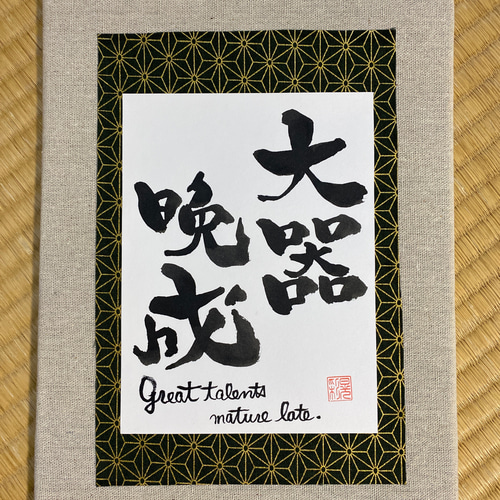 大器
晩成
Great talents
mature late.